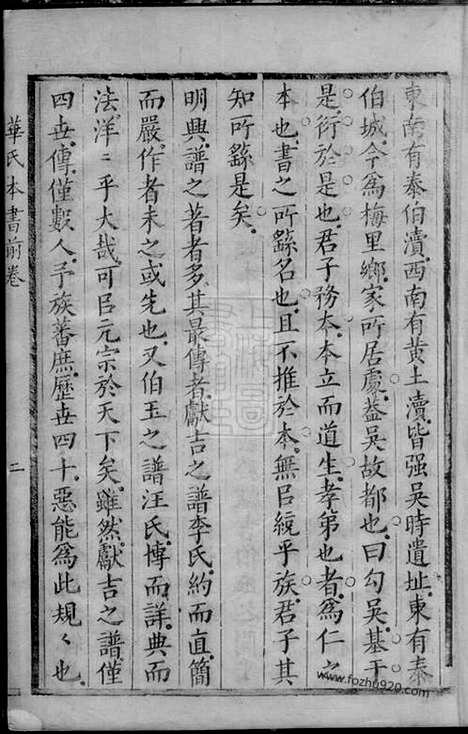 東南有泰伯瀆西南有黄土瀆皆强吴時遺址東有泰
伯城今爲梅里鄉家所居處葢吴故都也曰勾吴基于
是衍於是也君子務本本立而道生孝弟也者爲仁之
本也書之所繇名也且不推於本無㠯統乎族君子其
知所繇是矣
明興譜之著者多其最傳者獻吉之譜李氏約而直簡
而嚴作者未之或先也又伯玉之譜汪氏博而詳典而
法洋〻乎大哉可㠯元宗於天下矣雖然獻吉之譜僅
四世傳僅數人予族蕃庶歷世四十惡能爲此規〻也
華氏本書前卷
二
www.fozhu920.com